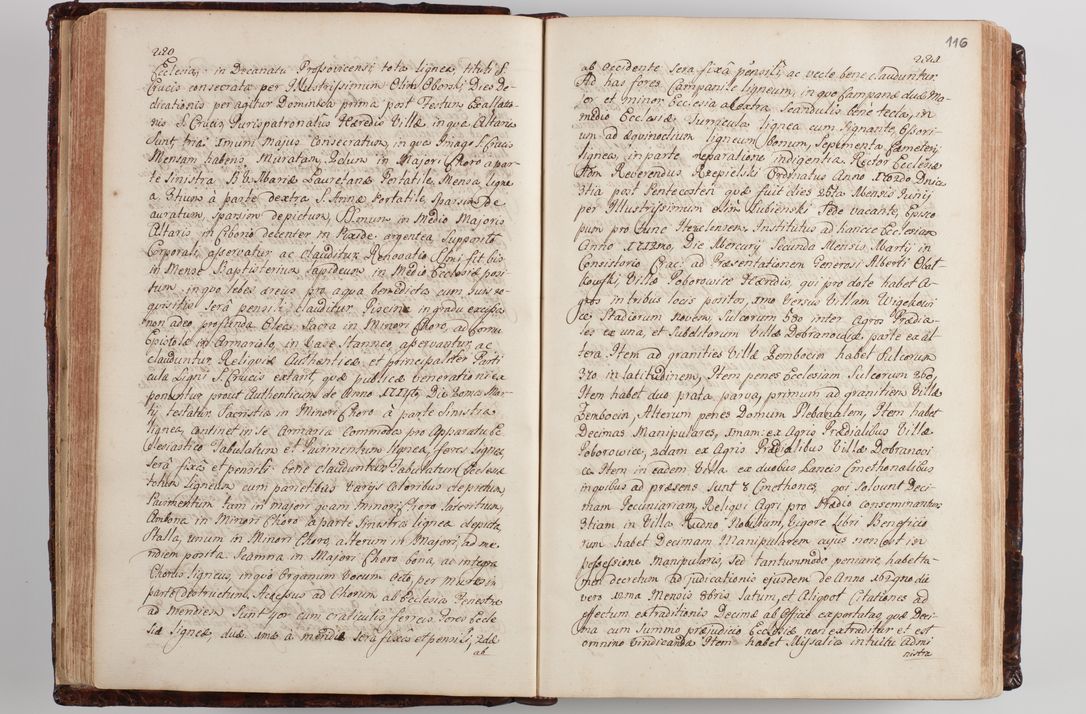 220
Ecclesia, in Decanatu Prossovicensi tota lignea, tituli S.
Crucis consecrata per Illustrissimum Olim Oborski, Dies De
dicationis peragitur Dominica prima post Festum Exaltatio
nis S. Crucis, Jurispatronatus Hæredis Villæ in qua Altaria
Sunt tria: 1mum Majus Consecratum, in quo Imago S. Crucis
Mensam habens Muratam, 2dum in Majori Choro a par
te Sinistra B. V. Mariæ Lauretanæ Portatile, Mensa ligne
a 3tium à parte dextra S. Annæ Portatile, Sparsim De
auratum, Sparsim depictum, Divinum in Medio Majoris
Altaris in Ciborio decenter in Pixide argentea Supposito
Corporali, asservatur ac Clauditur, Renovatio fit bis
in Mense Baptisterium lapideum, in Medio Ecclesiæ posi
tum, in quo lebes æreus pro aqua benedicta cum suis re
quisitis Será pensili clauditur Piscina in gradu excepta
non adeo profunda. Olea Sacra in Minori Choro, au Cornu
Epistolæ in Armariolo, in Vase Stanneo, asservantur, ac
clauduntur, Reliquiæ Authenticæ et principaliter Parti
cula Ligni S. Crucis extant, quæ publicæ venerationi ex
ponuntur prout Authenticum de Anno Die Mar
tij testatur Sacristia in Minori Choro à parte Sinistra
lignea, continet in se Armaria Commoda pro Apparatu Ec
clesiastico Tabulatum et Pavimentum lignea, fores lignea
Será fixâ et pensili bene clauduntur Tabulatum Ecclesiæ
totum ligneum cum parietibus Varijs Coloribus depictum,
Pavimentum tam in majori quam minori Choro lateritium,
Ambona in Minori Choro à parte Sinistra lignea depicta
Stalla, unum in Minori Choro alterum in Majori, ad me
ridiem posita Scamna in Majori Choro bona, ac integra
Chorus ligneus, in quo Organum Vocum Octo, per mures in
parte destructum, Accessus ad Chorum ab Ecclesia Fenestra
ad meridiem Sunt 4or cum craticulis ferreis Fores Eccle
siæ ligneæ duæ 1mæ à meridie será fixa et pensili, 2dæ
ab
116
221
ab occidente será fixâ pensili ac vecte bene clauduntur.
Ad has fores Campanile ligneum, in quo Campanæ duæ Ma
jor et minor Ecclesia ab extra Scandulis bene tecta, in
medio Ecclesiæ Turricula lignea cum Signante, Ossori
um ad æquinoctium ligneum bonum, Sepimenta Cæmeterij
lignea, in parte reparatione indigentia. Rector Ecclesiæ
Adm Reverendus Rzepielski Ordinatus Anno 1702do Dnica
3tia post Pentecosten quæ fuit dies 26ta Mensis Junij
per Illustrissimum olim Lubienski Sede vacante, Episco
pum pro tunc Heraclensem, Institutus ad hancce Ecclesiam
Anno 1712mo, Die Mercurij Secunda Mensis Martij in
Consistorio Crac: ad Præsentationem Generosi Alberti Okol
kowski, Villæ Poborowice Hæredis, qui pro dote habet A
gros in tribus locis positos, 1mo Versus Villam
ce Stadiorum Novem, Sulcorum 530 inter Agros Prædia
les ex una, et Subditorum Villæ Dobranowice parte ex al
tera Item ad granities Villæ Zembocin habet Sulcorum
370 in latitudinem, Item penes Ecclesiam Sulcorum 260,
Item habet duo prata parva, primum ad granitiem Villæ
Zembocin, Alterum penes Domum Plebanalem, Item habet
Decimas Manipulares, 1mam: ex Agris Prædialibus Villæ
Poborowice, 2dam ex Agris Prædialibus Villæ Dobranowi
ce Item in eadem Villa ex duobus Laneis Cmethonalibus
in quibus ad præsens Sunt 8 Cmethones, qui Solvunt Deci
mam Pecuniariam, Reliqui Agri pro Prædio conseminantur
3tiam in Villa Rudno Nobilium, Vigore Libri Beneficio
rum habet Decimam Manipularem cujus non est in
possessione Manipularis, Sed tantummodo pecuniæ, habet ta
men decretum Adjudicationis ejusdem de Anno 1629no die
vero 12ma Mensis 8bris latum, et Aliquot Citationes ad
effectum extraditionis Decimæ ab Officio exportatas, quæ Deci
ma cum Summo præjudicio Ecclesiæ non extraditur et est
omnino Vindicanda Item habet Missalia intuitu Admi
nistra